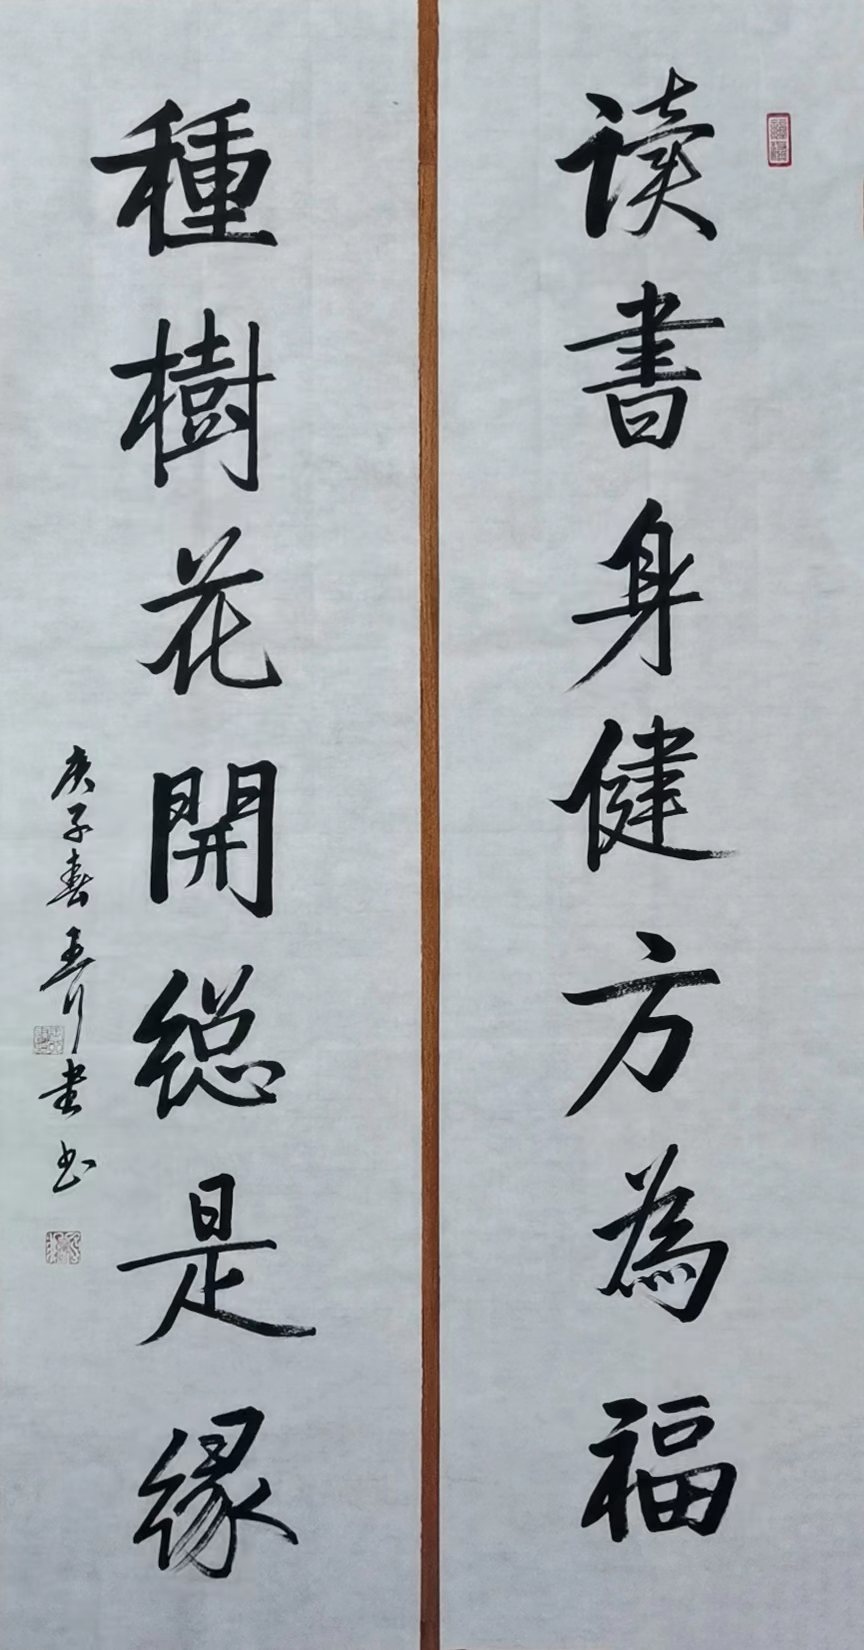 读書身健方為福
種樹花開總是緣
庚子春
书